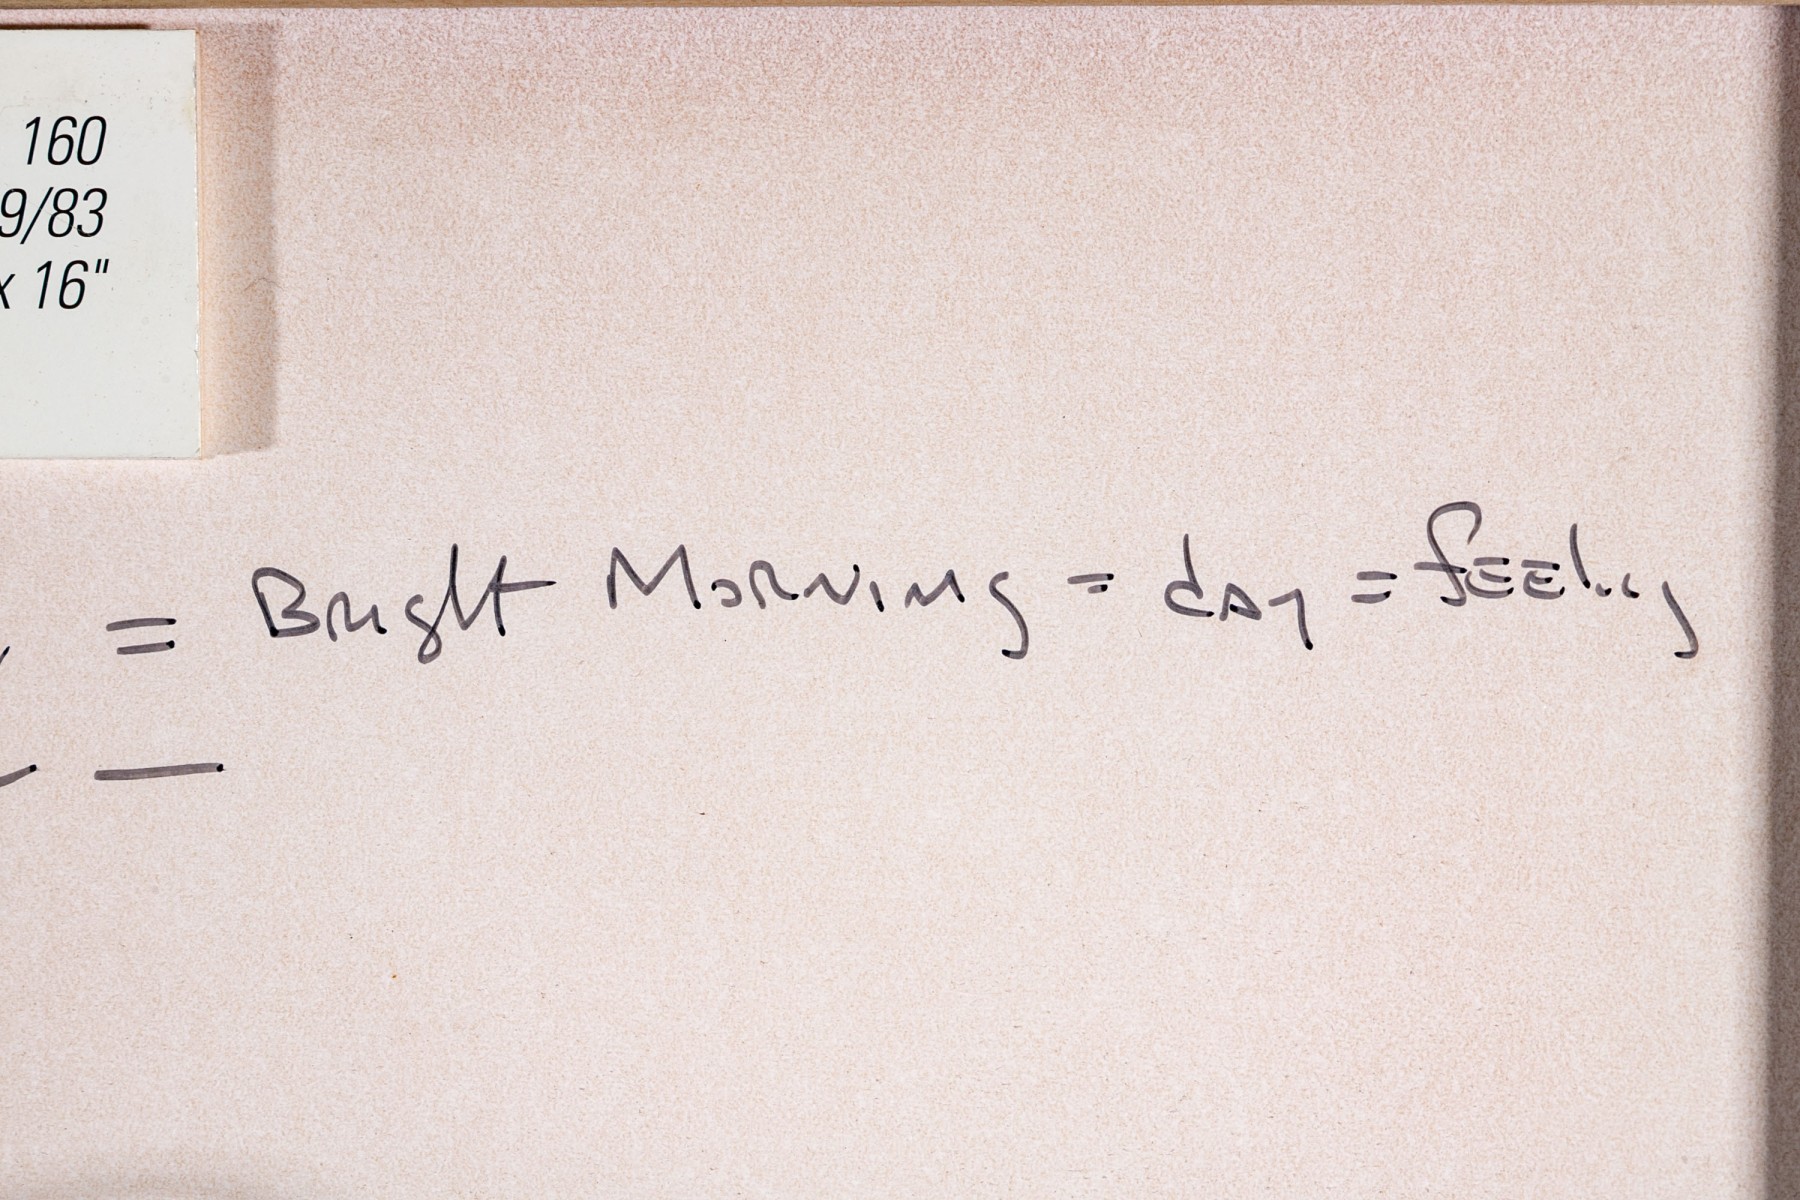 160
9/83
x 16"
= Bright Morning = day = feeling
—